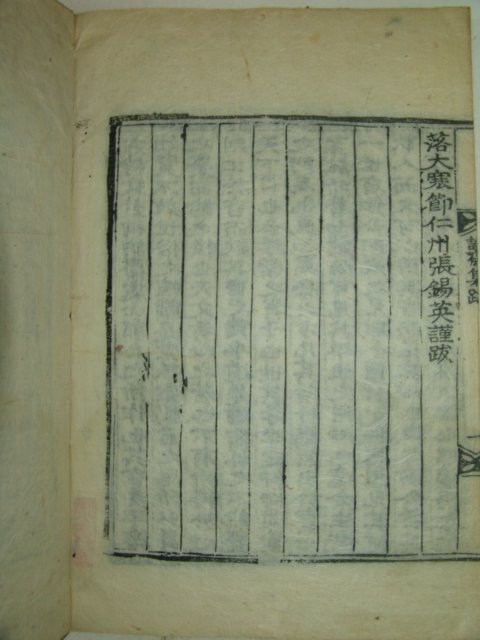 落大寒節仁州張錫英謹跋
集跋